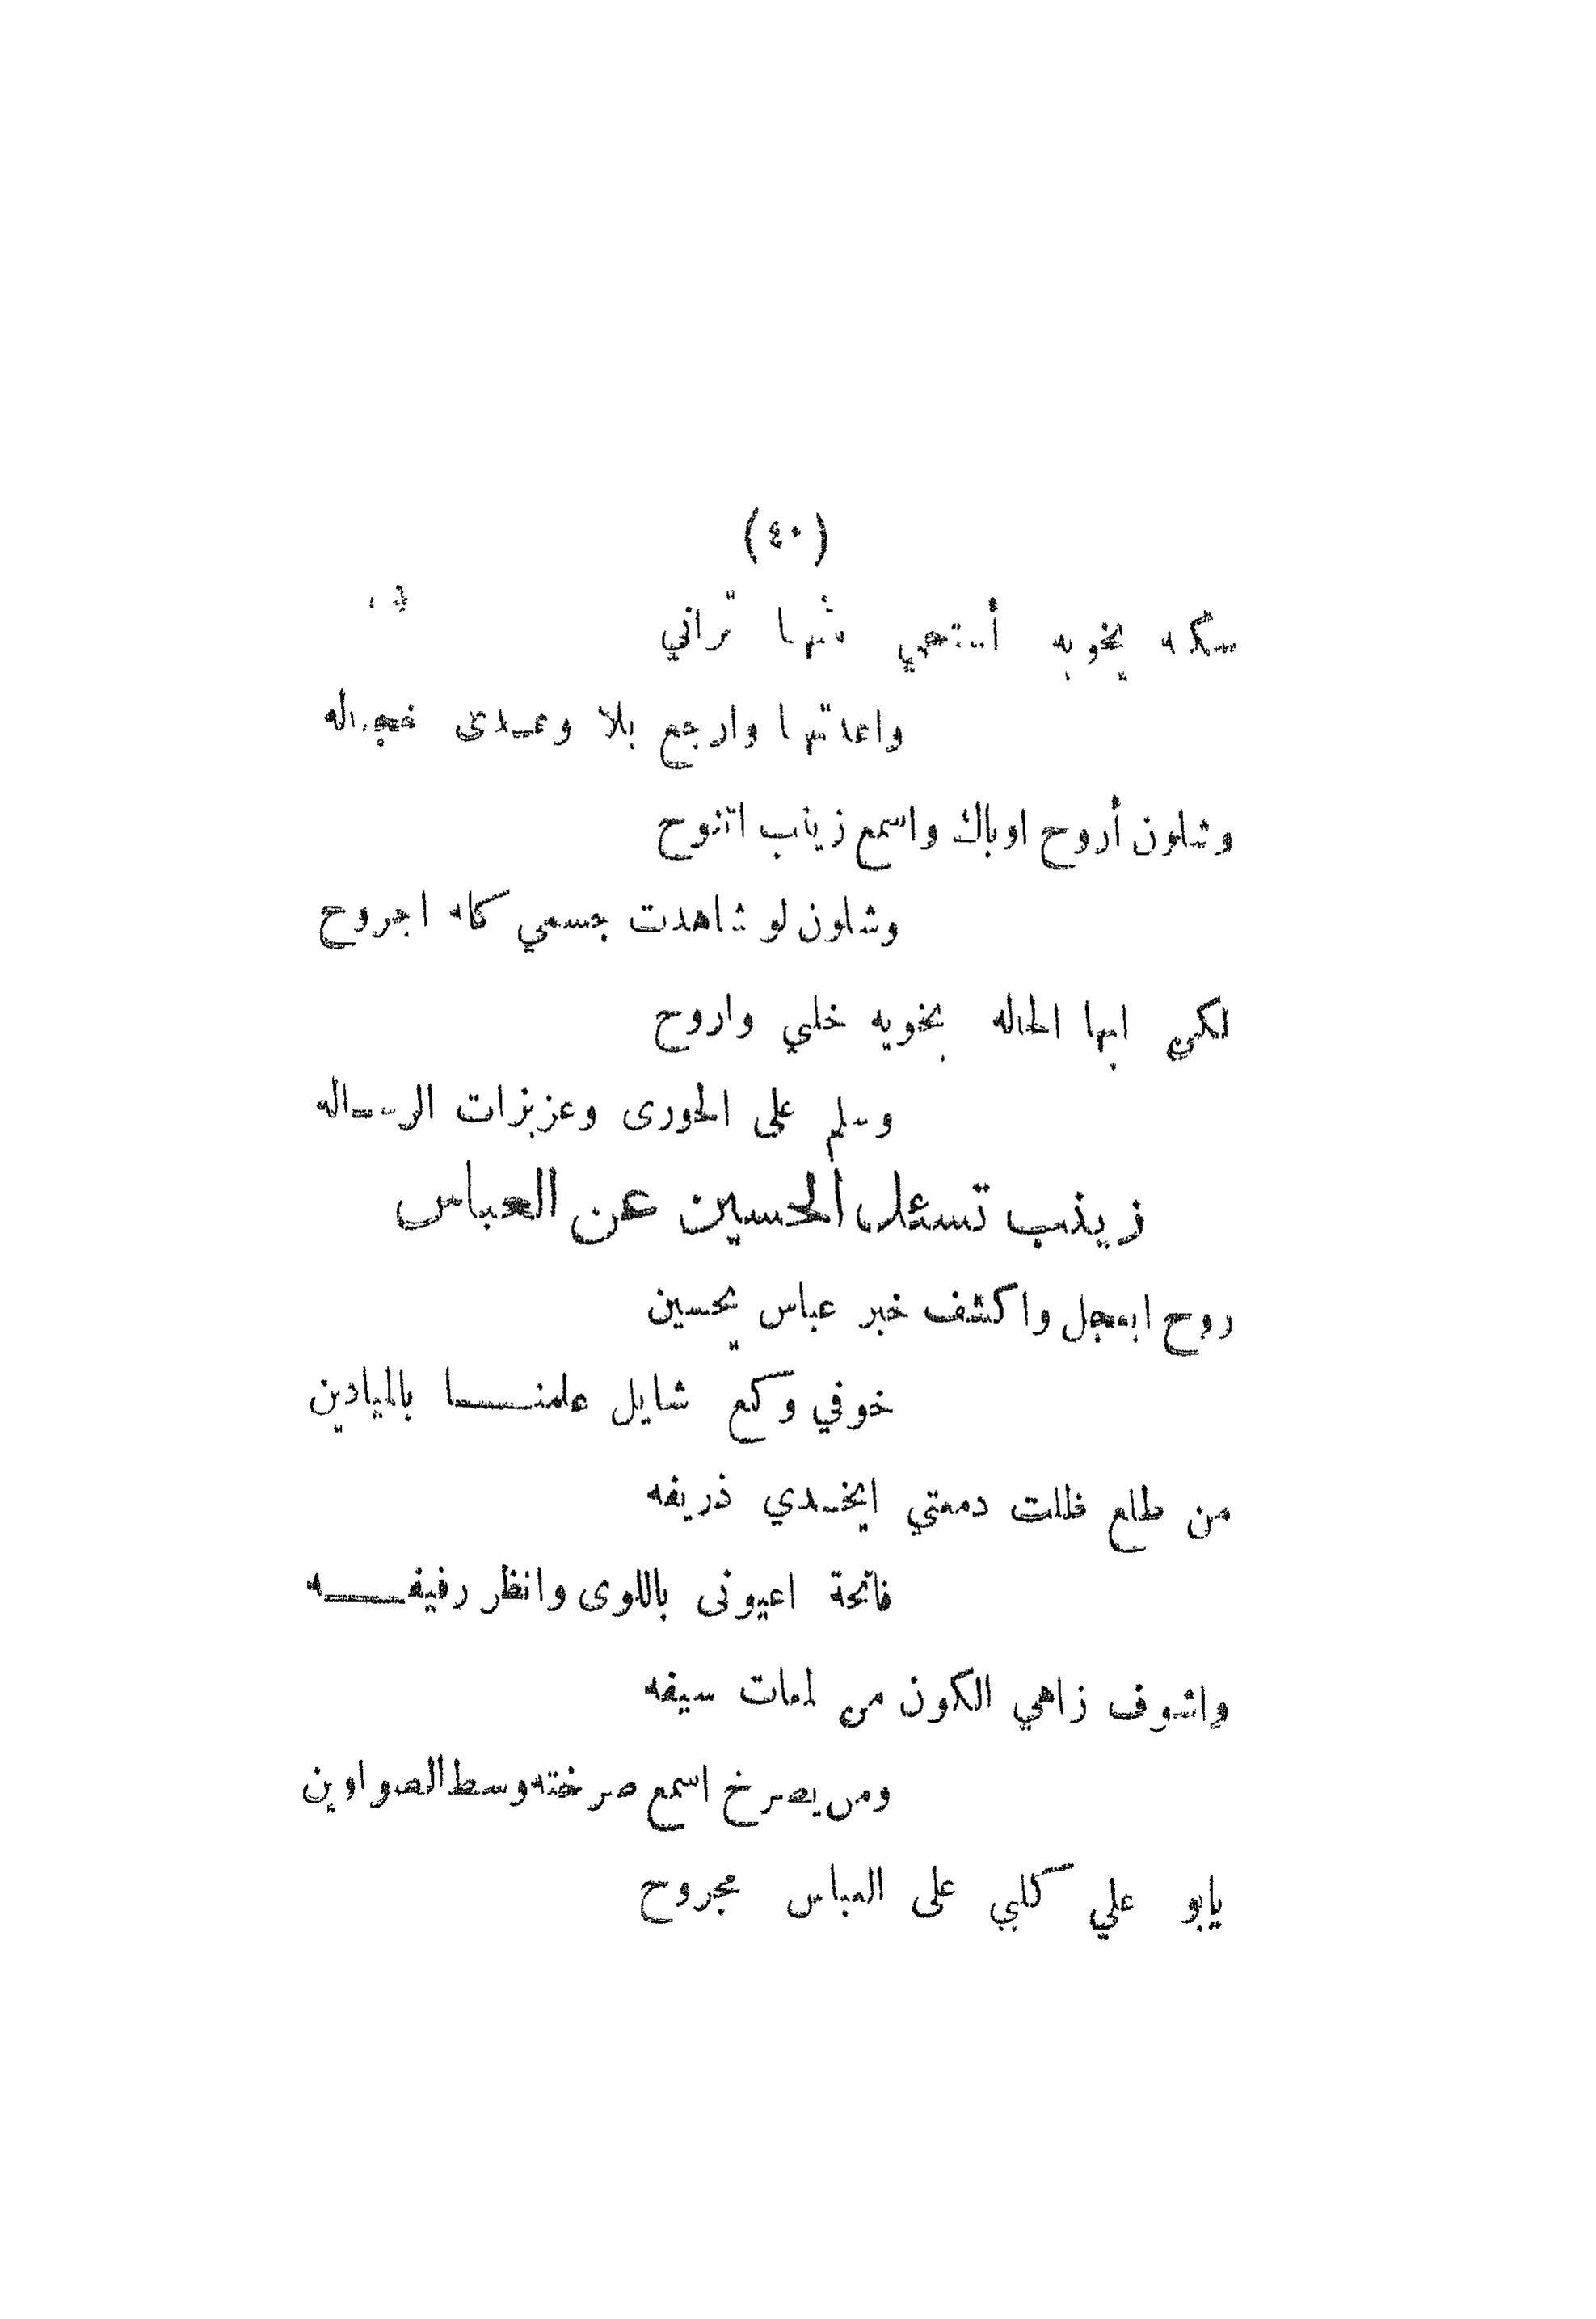 (٤٠)
سكنه يخويه أستحي منها تراني
واعدتها وارجع بلا وعدى خجاله
وشلون أروح اوياك واسمع زينب اتنوح
وشلون لو شاهدت جسمي كله اجروح
لكن ابها الحاله يخويه خلي واروح
وسلم على الحورى وعزيزات الرساله
زينب تسئل الحسين عن العباس
روح ابعجل واكشف خبر عباس يحسين
خوفي وكع شايل علمنا بالميادين
من طلع ظلت دمعتي ابخدي ذريفه
فاتحة اعيونى باللوى وانظر رفيفه
واشوف زاهي الكون من لمعات سيفه
ومن يصرخ اسمع صرخته وسط الصواوين
يابو علي كلبي على العباس مجروح